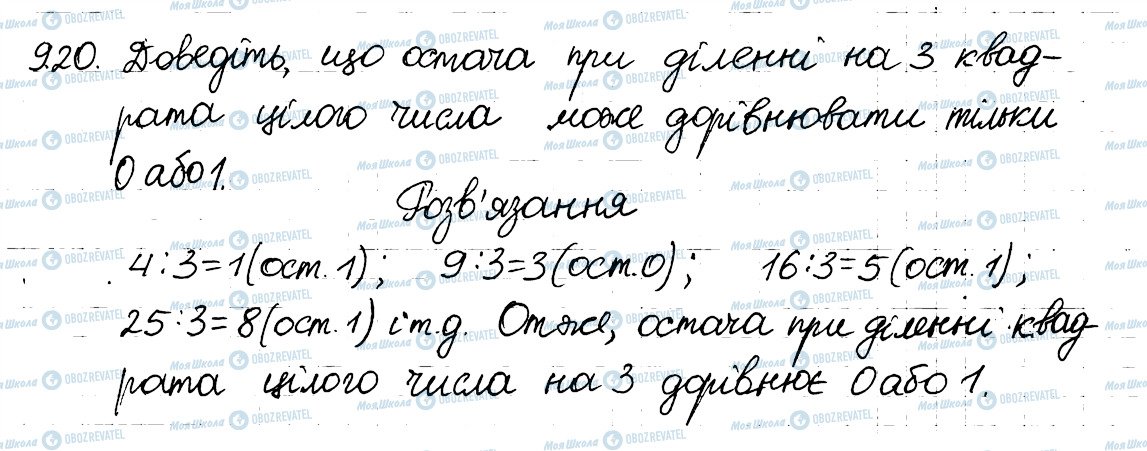 9.20. Доведіть, що остача при діленні на 3 квад-
рата цілого числа може дорівнювати тільки
0 або 1.
Розв'язання
4:3=1(ост.1); 9:3=3(ост.0); 16:3=5(ост.1);
25:3=8(ост.1) і т.д. Отже, остача при діленні квад-
рата цілого числа на 3 дорівнює 0 або 1.